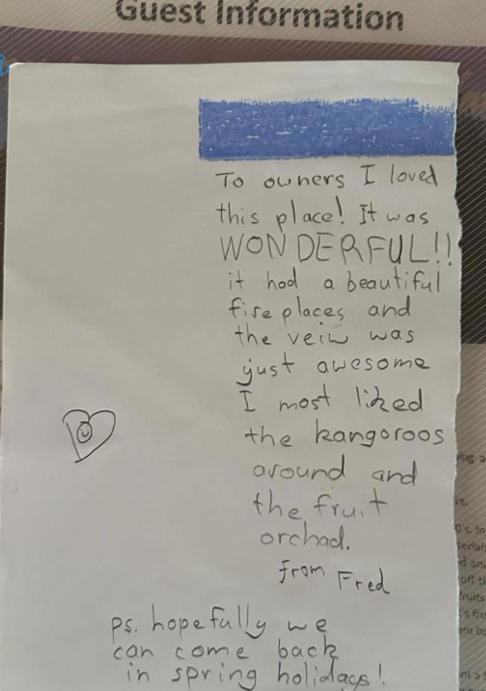 Guest Information
To owners I loved
this place! It was
WONDERFUL!!
it had a beautiful
fire places and
the veiw was
just awesome
I most liked
the kangoroos
around and
the fruit
orchad.
from Fred
ps. hopefully we
can come back
in spring holidags!